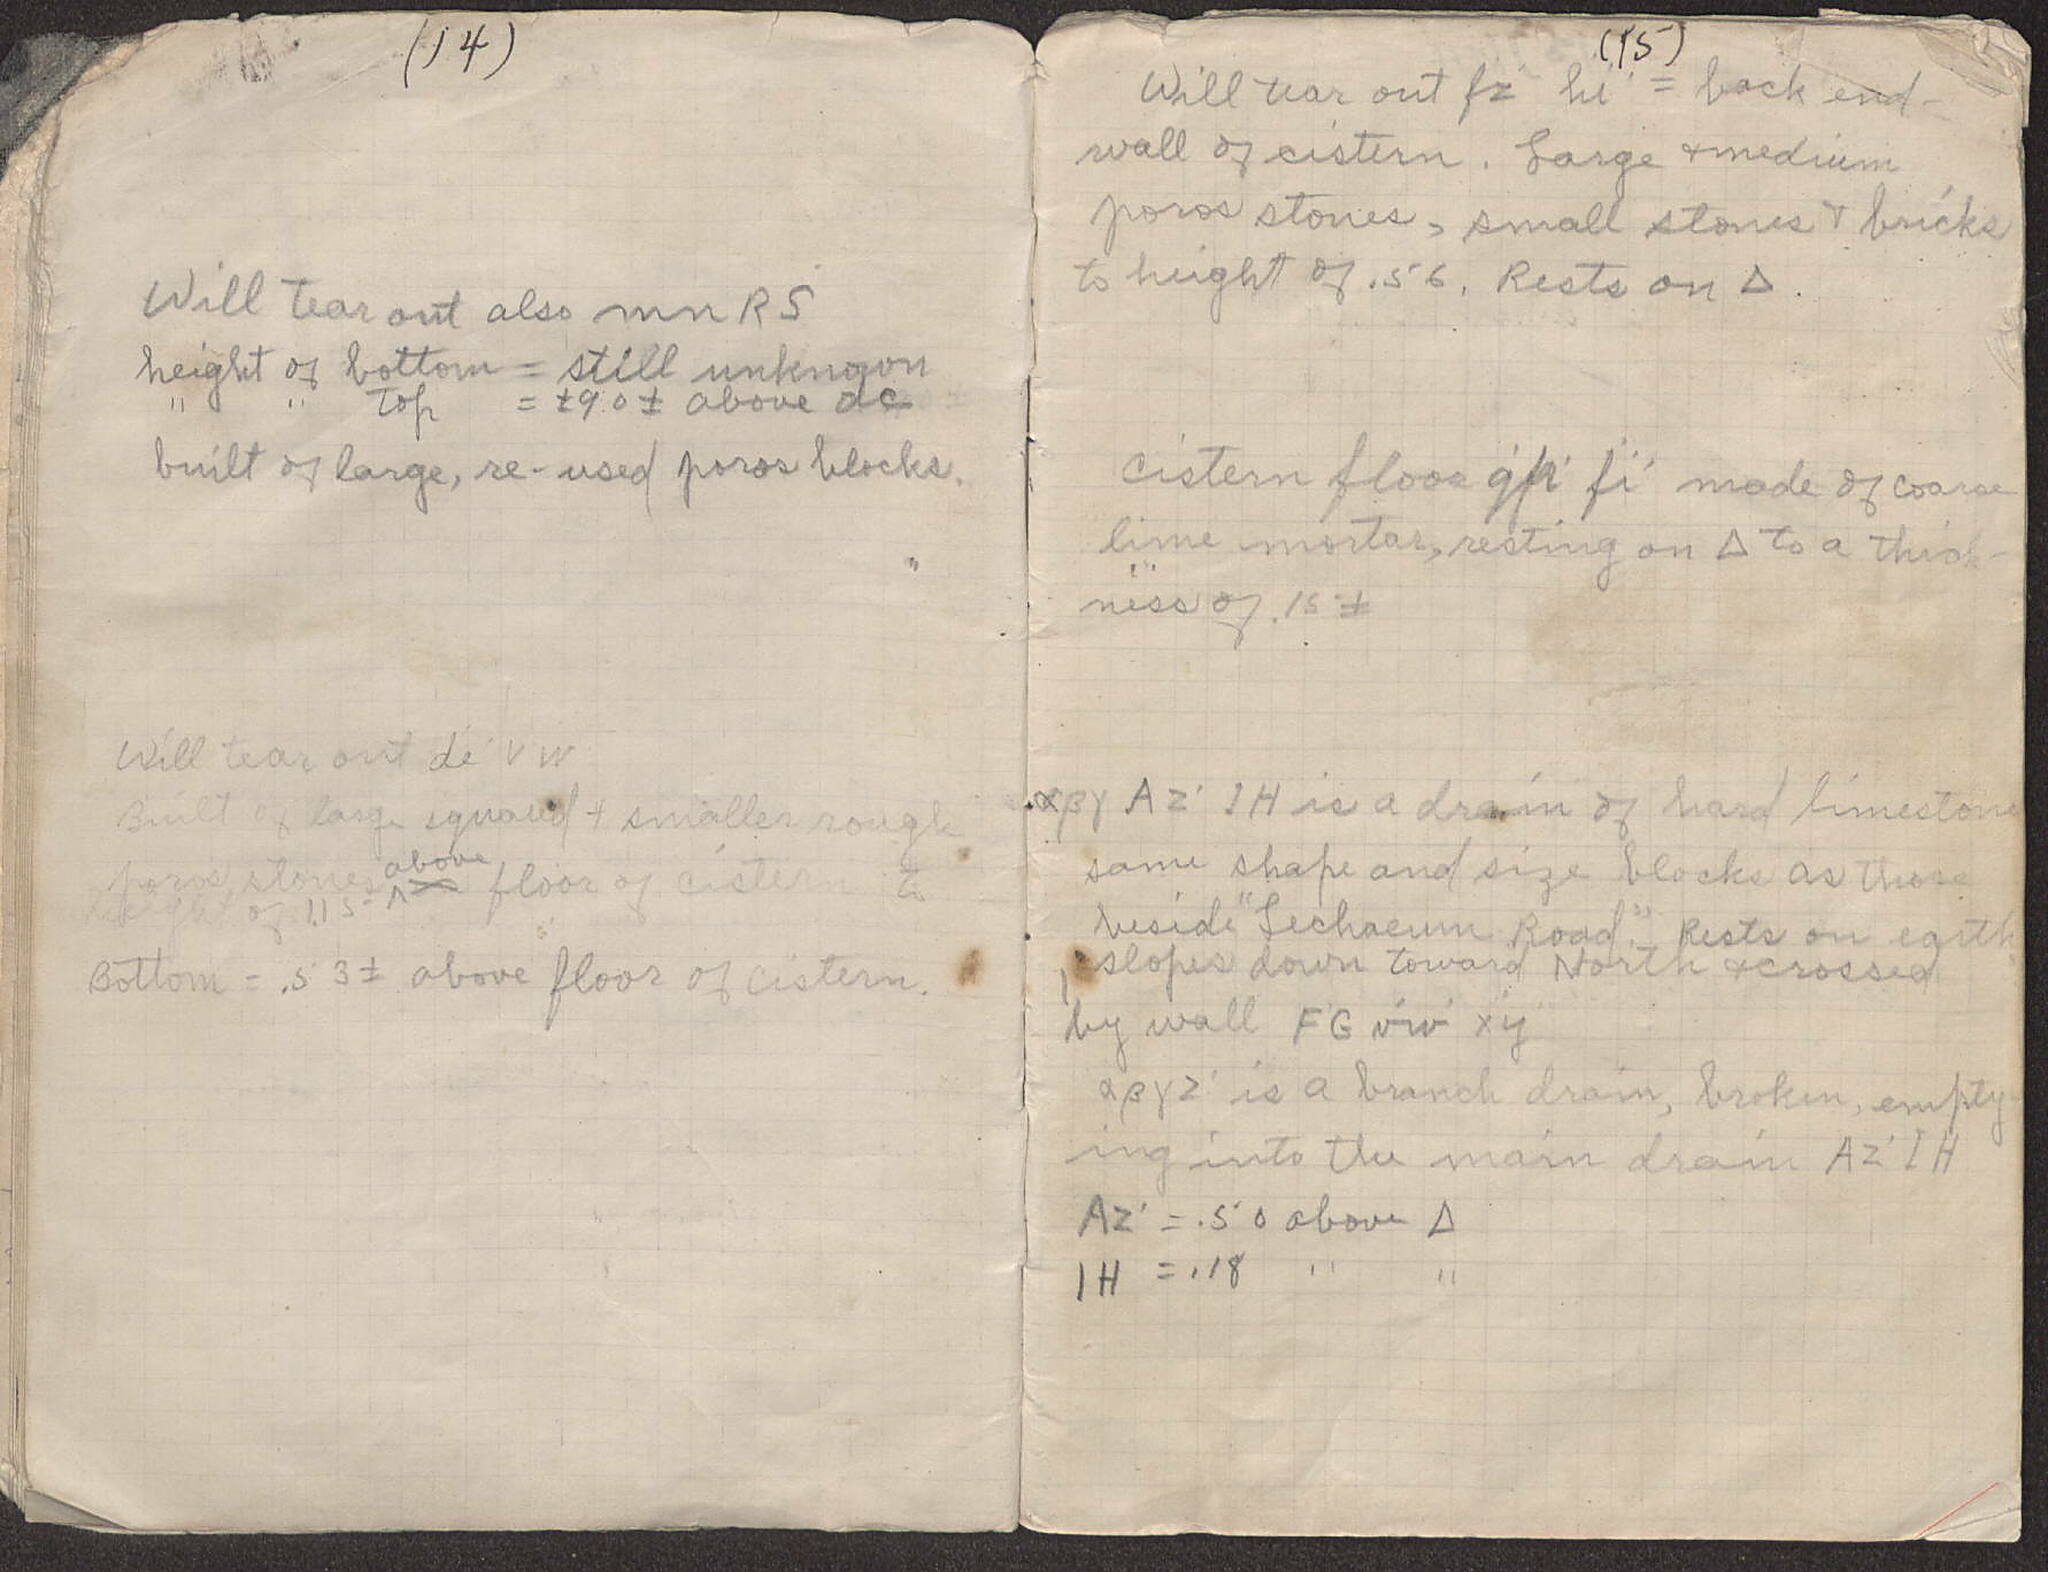 (14)
Will tear out also mn RS
height of bottom = still unknown
" " Top = ±90± above ac
built of large, re-used poros blocks.
Will tear out de' VW
Built of large squared + smaller rough
poros stones above floor of cistern to
height of 1.15
Bottom = .53± above floor of cistern.
(15)
Will tear out fz' hi' = back end-
wall of cistern. Large + medium
poros stones, small stones + bricks
to height of .56. Rests on Δ.
Cistern floor f'i' made of coarse
lime mortar, resting on Δ to a thick-
ness of .15±
αβγ AZ' IH is a drain of hard limestone
same shape and size blocks as those
beside "Lechaeum Road". Rests on earth
slopes down toward North + crossed
by wall FG v'w' x'y'
αβγz' is a branch drain, broken, empty-
ing into the main drain AZ' IH
AZ' = .50 above Δ
IH = .18 " "